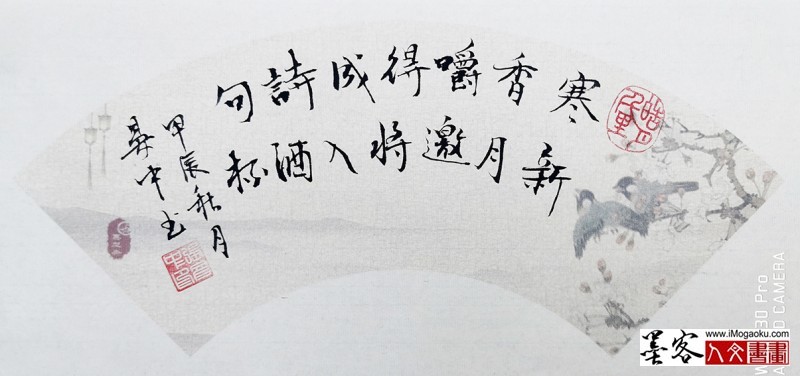 寒香嚼得成詩句
新月邀將入酒杯
甲辰秋月
中书
30 Pro
CAMERA
www.iMogaoku.com
墨客人文書畫